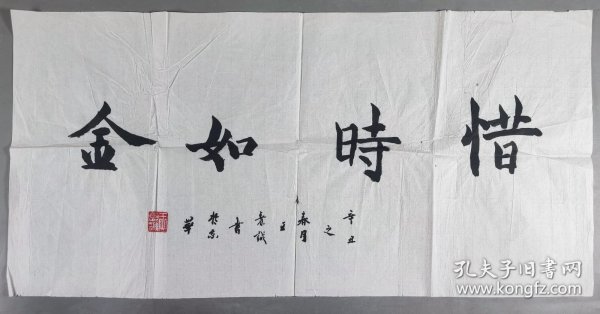 惜時如金
辛丑
之
春月
王
書
孔夫子旧书网
www.kongfz.com